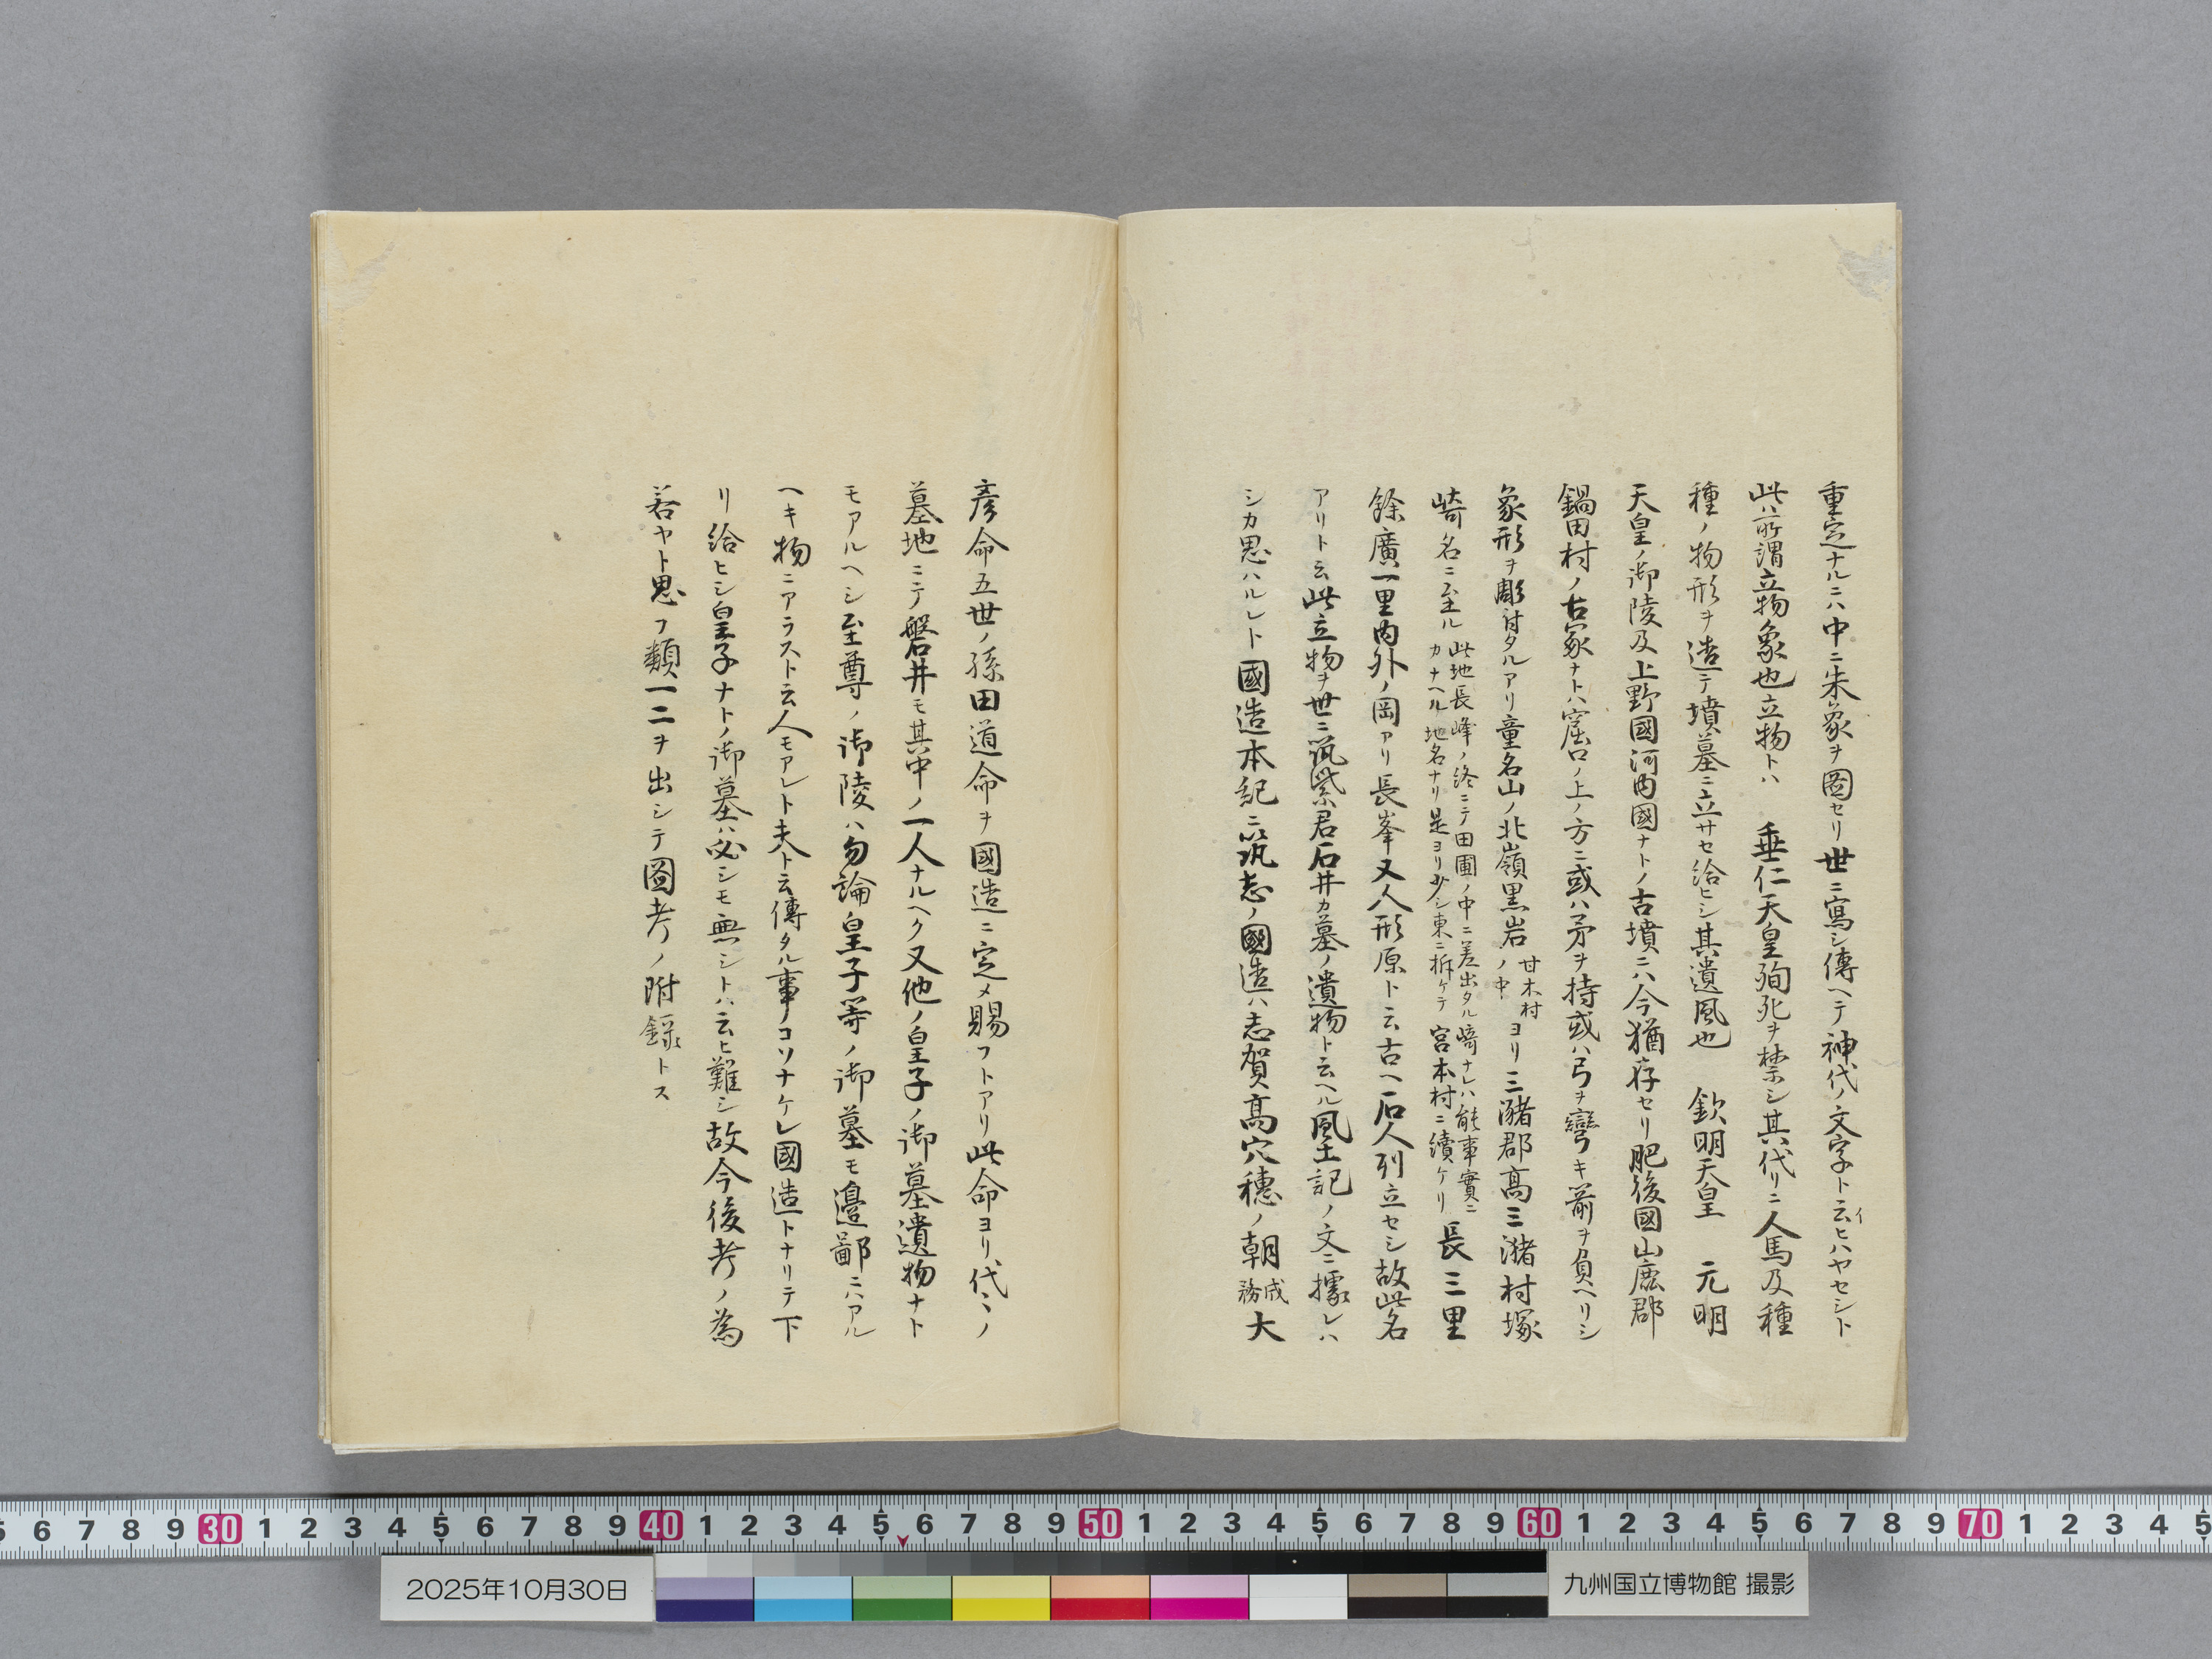 重定ナルニハ中ニ朱象ヲ圖セリ世ニ寫シ傳ヘテ神代ノ文字ト云イヒハヤセシト
此ハ所謂立物象也立物トハ 垂仁天皇殉死ヲ禁シ其代リニ人馬及種
種ノ物形ヲ造テ墳墓ニ立サセ給ヒシ其遺風也 欽明天皇 元明
天皇ノ御陵及上野國河内國ナトノ古墳ニハ今猶存セリ肥後國山鹿郡
鍋田村ノ古冢ナトハ窟口ノ上ノ方ニ或ハ矛ヲ持或ハ弓ヲ彎キ箭ヲ負ヘリシ
象形ヲ彫付タルアリ童名山ノ北嶺黒岩甘木村ノ中ヨリ三潴郡高三潴村塚
崎名ニ至ル此地長峰ノ終ニテ田圃ノ中ニ差出タル崎ナレハ能事實ニカナヘル地名ナリ是ヨリ少シ東ニ折ケテ宮本村ニ續ケリ長三里
餘廣一里内外ノ岡アリ長峯又人形原ト云古ヘ石人列立セシ故此名
アリト云此立物ヲ世ニ筑紫君石井カ墓ノ遺物ト云ヘル風土記ノ文ニ據レハ
シカ思ハルレト國造本紀ニ筑志ノ國造ハ志賀高穴穗ノ朝成務大
彦命五世ノ孫田道命ヲ國造ニ定メ賜フトアリ此命ヨリ代々ノ
墓地ニテ磐井モ其中ノ一人ナルヘク又他ノ皇子ノ御墓遺物ナト
モアルヘシ至尊ノ御陵ハ勿論皇子等ノ御墓モ邉鄙ニハアル
ヘキ物ニアラスト云人モアレト夫ト云傳タル事ノコソナケレ國造トナリテ下
リ給ヒシ皇子ナトノ御墓ハ必シモ無シトハ云ヒ難シ故今後考ノ為
若ヤト思フ類一二ヲ出シテ圖考ノ附錄トス
5 6 7 8 9 30 1 2 3 4 5 6 7 8 9 40 1 2 3 4 5 6 7 8 9 50 1 2 3 4 5 6 7 8 9 60 1 2 3 4 5 6 7 8 9 70 1 2 3 4 5
2025年10月30日
九州国立博物館 撮影